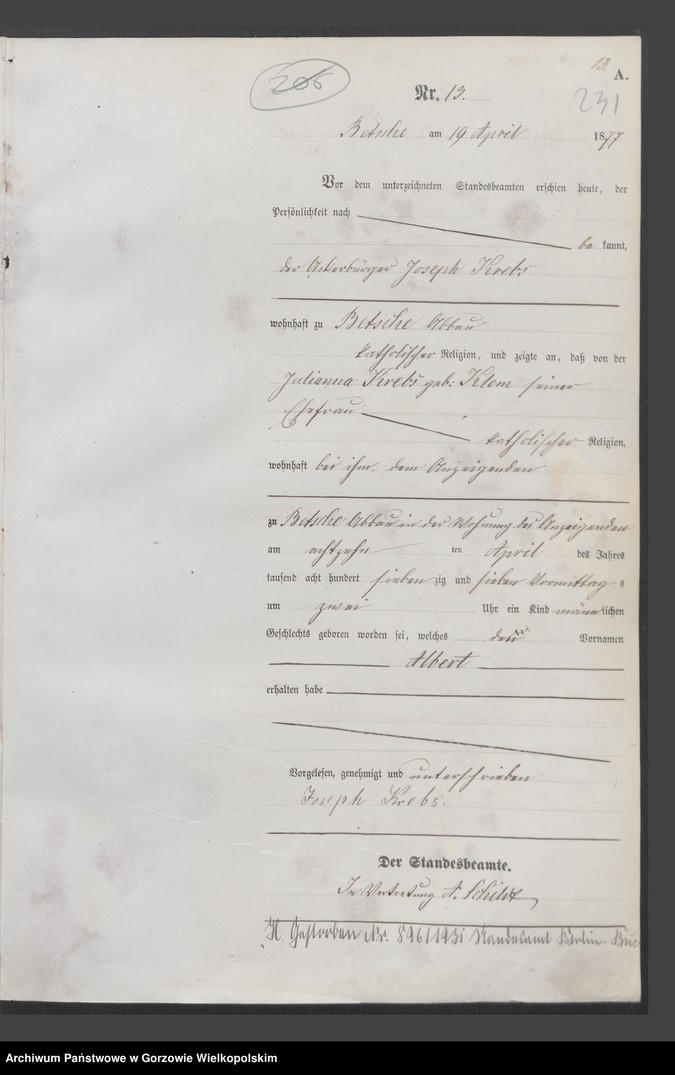 206
13.
A.
Nr. 13.
231
Betsche am 19 April 1877
Vor dem unterzeichneten Standesbeamten erschien heute, der
Persönlichkeit nach
be kannt,
der Ackerbürger Joseph Krebs
wohnhaft zu Betsche Abbau
katholischer Religion, und zeigte an, daß von der
Julianna Krebs geb: Klem seiner
Ehefrau
katholischer Religion,
wohnhaft bei ihm, dem Anzeigenden
zu Betsche Abbau in der Wohnung des Anzeigenden
am achtzehn ten April des Jahres
tausend acht hundert sieben zig und sieben Vormittag s
um zwei Uhr ein Kind männlichen
Geschlechts geboren worden sei, welches den Vornamen
Albert
erhalten habe
Vorgelesen, genehmigt und unterschrieben
Joseph Krebs.
Der Standesbeamte.
In Vertretung A. Schildt
Gestorben Nr. Standesamt Berlin-
Archiwum Państwowe w Gorzowie Wielkopolskim